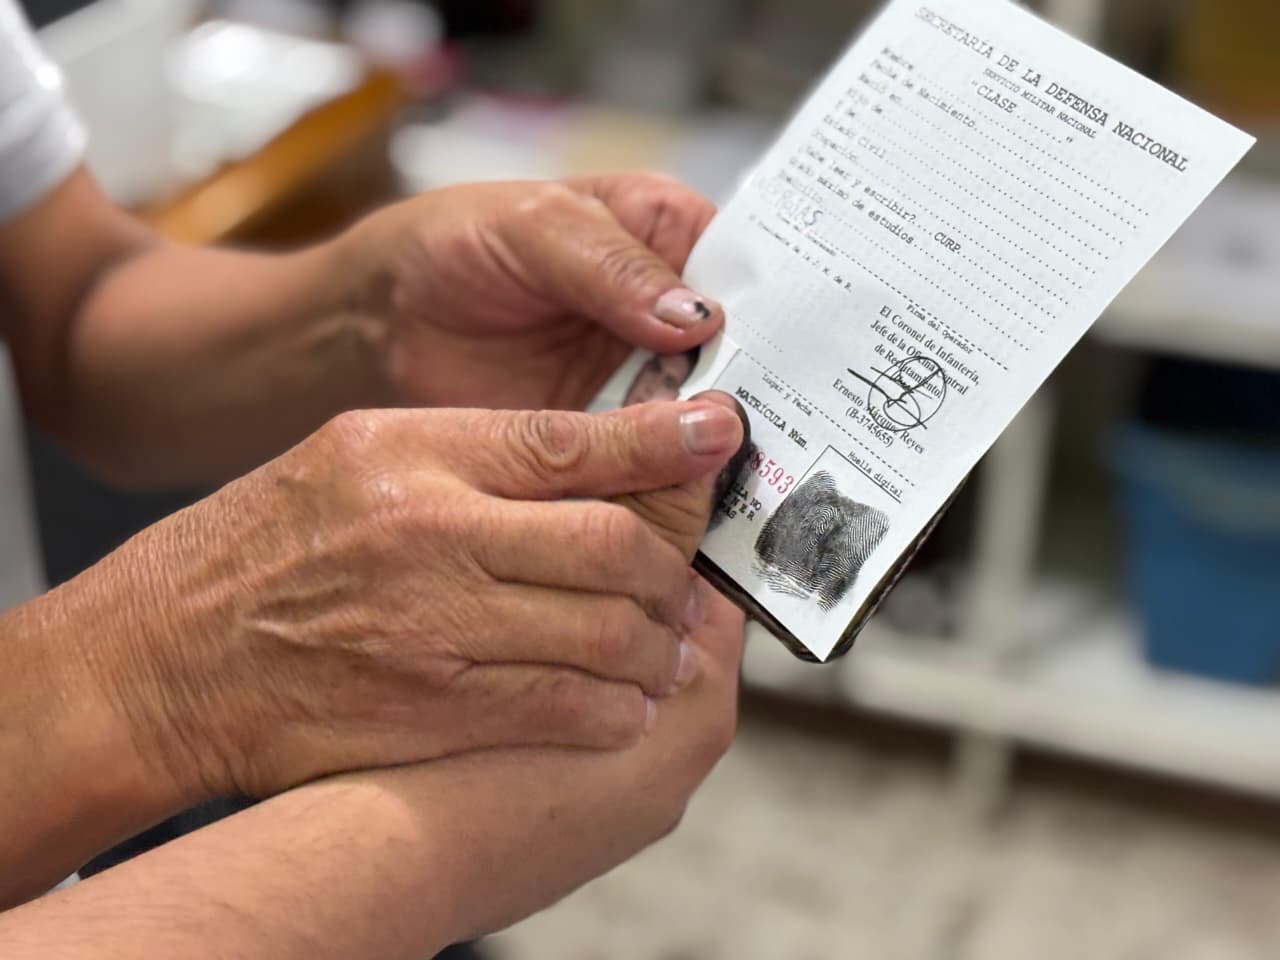 SECRETARÍA DE LA DEFENSA NACIONAL
SERVICIO MILITAR NACIONAL
"CLASE ........"
Nombre
Fecha de Nacimiento
Nació en
Hijo de
Y de
Estado Civil
Ocupación
¿Sabe leer y escribir? CURP
Grado máximo de estudios
Domicilio
Presidente de la J. M. de R.
Firma del Operador
El Coronel de Infantería,
Jefe de la Oficina Central
de Reclutamiento
Ernesto Márquez Reyes
(B-3745655)
Lugar y Fecha
MATRÍCULA Núm.
8593
Huella digital